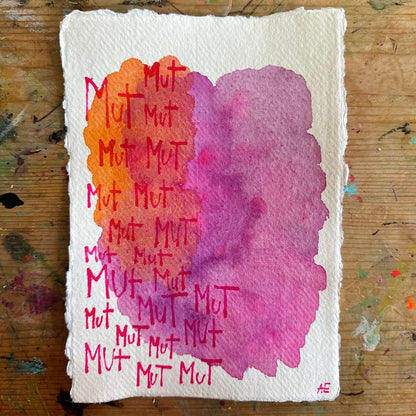 Mut
Mut Mut
Mut MuT
Mut Mut
Mut MUT
Mut Mut
Mut Mut
MUT MUT
Mut
Mut Mut MUT
Mut
MUT MUT
AE